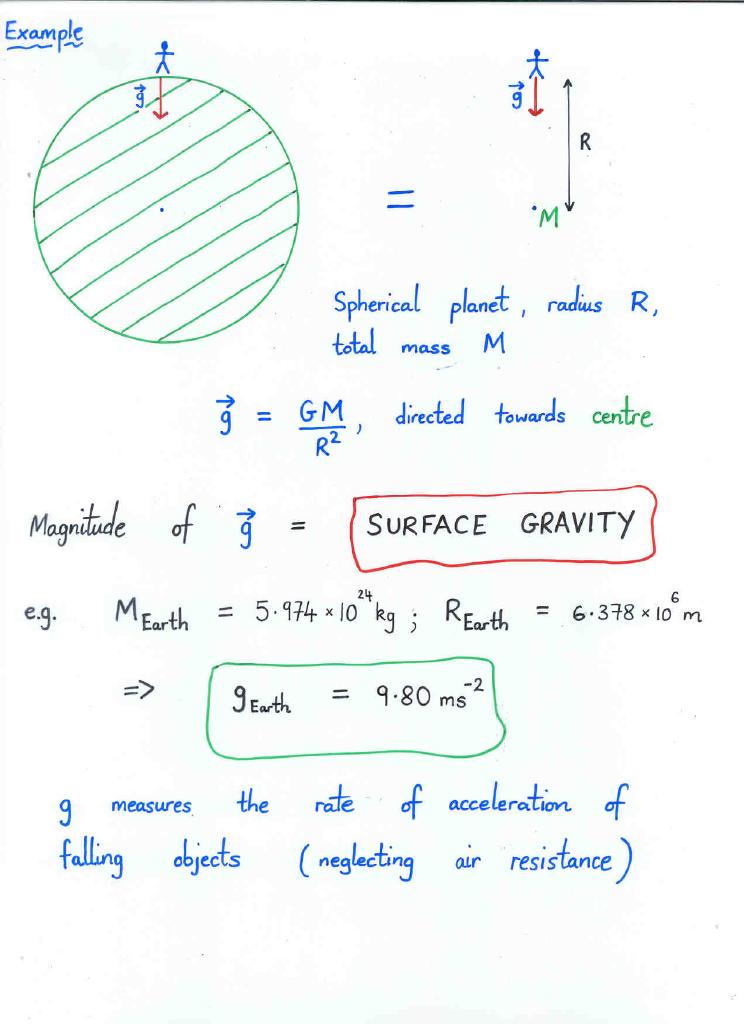 Example
g⃗
g⃗
R
=
M
Spherical planet, radius R,
total mass M
g⃗ = GM/R², directed towards centre
Magnitude of g⃗ = SURFACE GRAVITY
e.g. M_Earth = 5.974 × 10²⁴ kg ; R_Earth = 6.378 × 10⁶ m
=> g_Earth = 9.80 ms⁻²
g measures the rate of acceleration of
falling objects (neglecting air resistance)